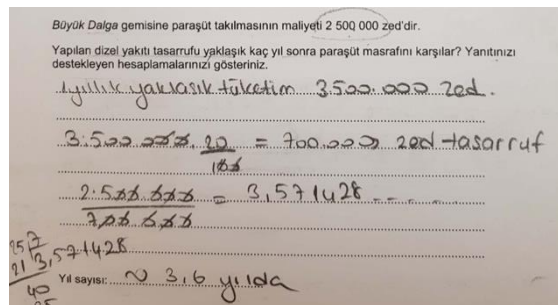 Büyük Dalga gemisine paraşüt takılmasının maliyeti 2 500 000 zed'dir.
Yapılan dizel yakıtı tasarrufu yaklaşık kaç yıl sonra paraşüt masrafını karşılar? Yanıtınızı
destekleyen hesaplamalarınızı gösteriniz.
1 yıllık yaklaşık tüketim 3.500.000 zed.
3.500.000. 20/100 = 700.000 zed tasarruf
2.500.000/700.000 = 3,571428
25 7
21 3,571428
40
Yıl sayısı: ~ 3,6 yılda